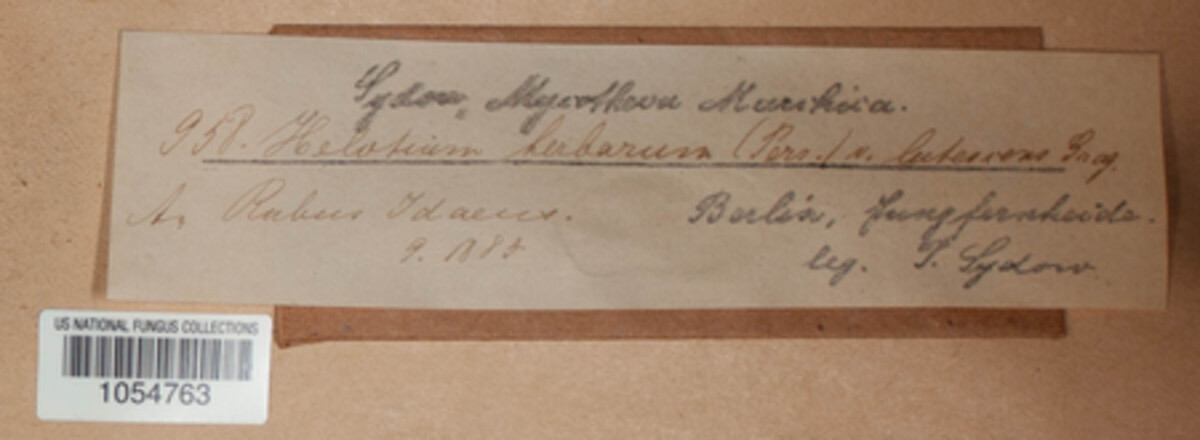 Sydow, Mycotheca Marchica.
958. Helotium herbarum (Pers.) v. lutescens Sacc.
A. Rubus Idaeus. Berlin, Jungfernheide.
9. 1885 leg. P. Sydow
US NATIONAL FUNGUS COLLECTIONS
1054763